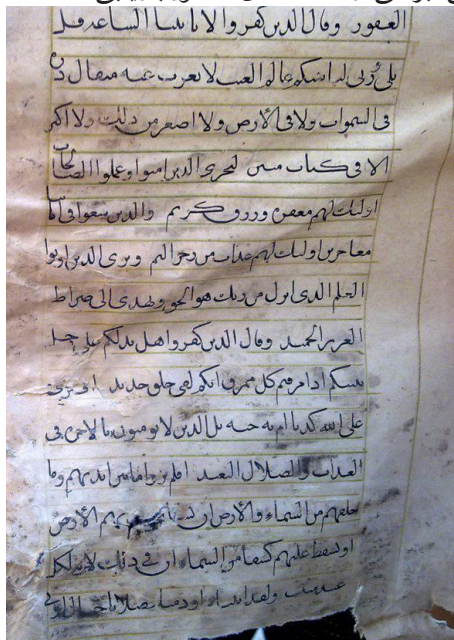 الغفور وقال الذين كفروا لا تاتينا الساعة قل
بلى وربي لتاتينكم عالم الغيب لا يعزب عنه مثقال ذرة
في السموات ولا في الارض ولا اصغر من ذلك ولا اكبر
الا في كتاب مبين ليجزي الذين امنوا وعملوا الصالحات
اولئك لهم مغفرة ورزق كريم والذين سعوا في اياتنا
معاجزين اولئك لهم عذاب من رجز اليم ويرى الذين اوتوا
العلم الذي انزل من ربك هو الحق ويهدي الى صراط
العزيز الحميد وقال الذين كفروا هل ندلكم على رجل
ينبئكم اذا مزقتم كل ممزق انكم لفي خلق جديد افترى
على الله كذبا ام به جنة بل الذين لا يومنون بالاخرة في
العذاب والضلال البعيد افلم يروا الى ما بين ايديهم وما
خلفهم من السماء والارض ان نشا بهم الارض
او نسقط عليهم كسفا من السماء ان في ذلك لاية لكل
عبد منيب ولقد اتينا داود منا فضلا يا جبال اوبي